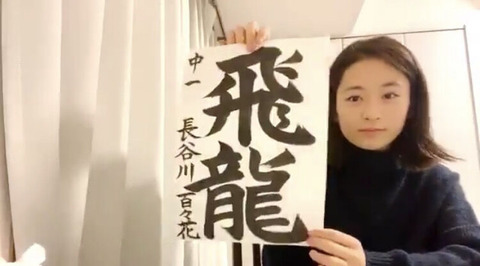 飛龍
中一 長谷川百々花